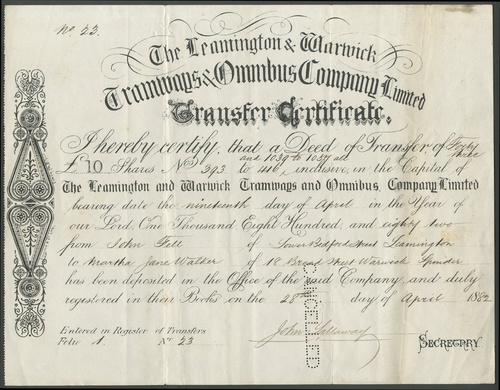 No. 23.
The Leamington & Warwick
Tramways & Omnibus Company Limited
Transfer Certificate.
I hereby certify, that a Deed of Transfer of Forty three
and 1039 to 1057 all
£10 Shares No 393 to 416, inclusive, in the Capital of
The Leamington and Warwick Tramways and Omnibus, Company Limited
bearing date the nineteenth day of April in the Year of
our Lord, One Thousand Eight Hundred, and eighty two
from John Fell of Tower Bedford Street Leamington
to Martha Jane Walker of 18 Broad Street Warwick Spinster
has been deposited in the Office of the said Company, and duly
registered in their Books on the 28th day of April 1882
CANCELLED
Entered in Register of Transfers
Folio 1 No 23
John
Secretary